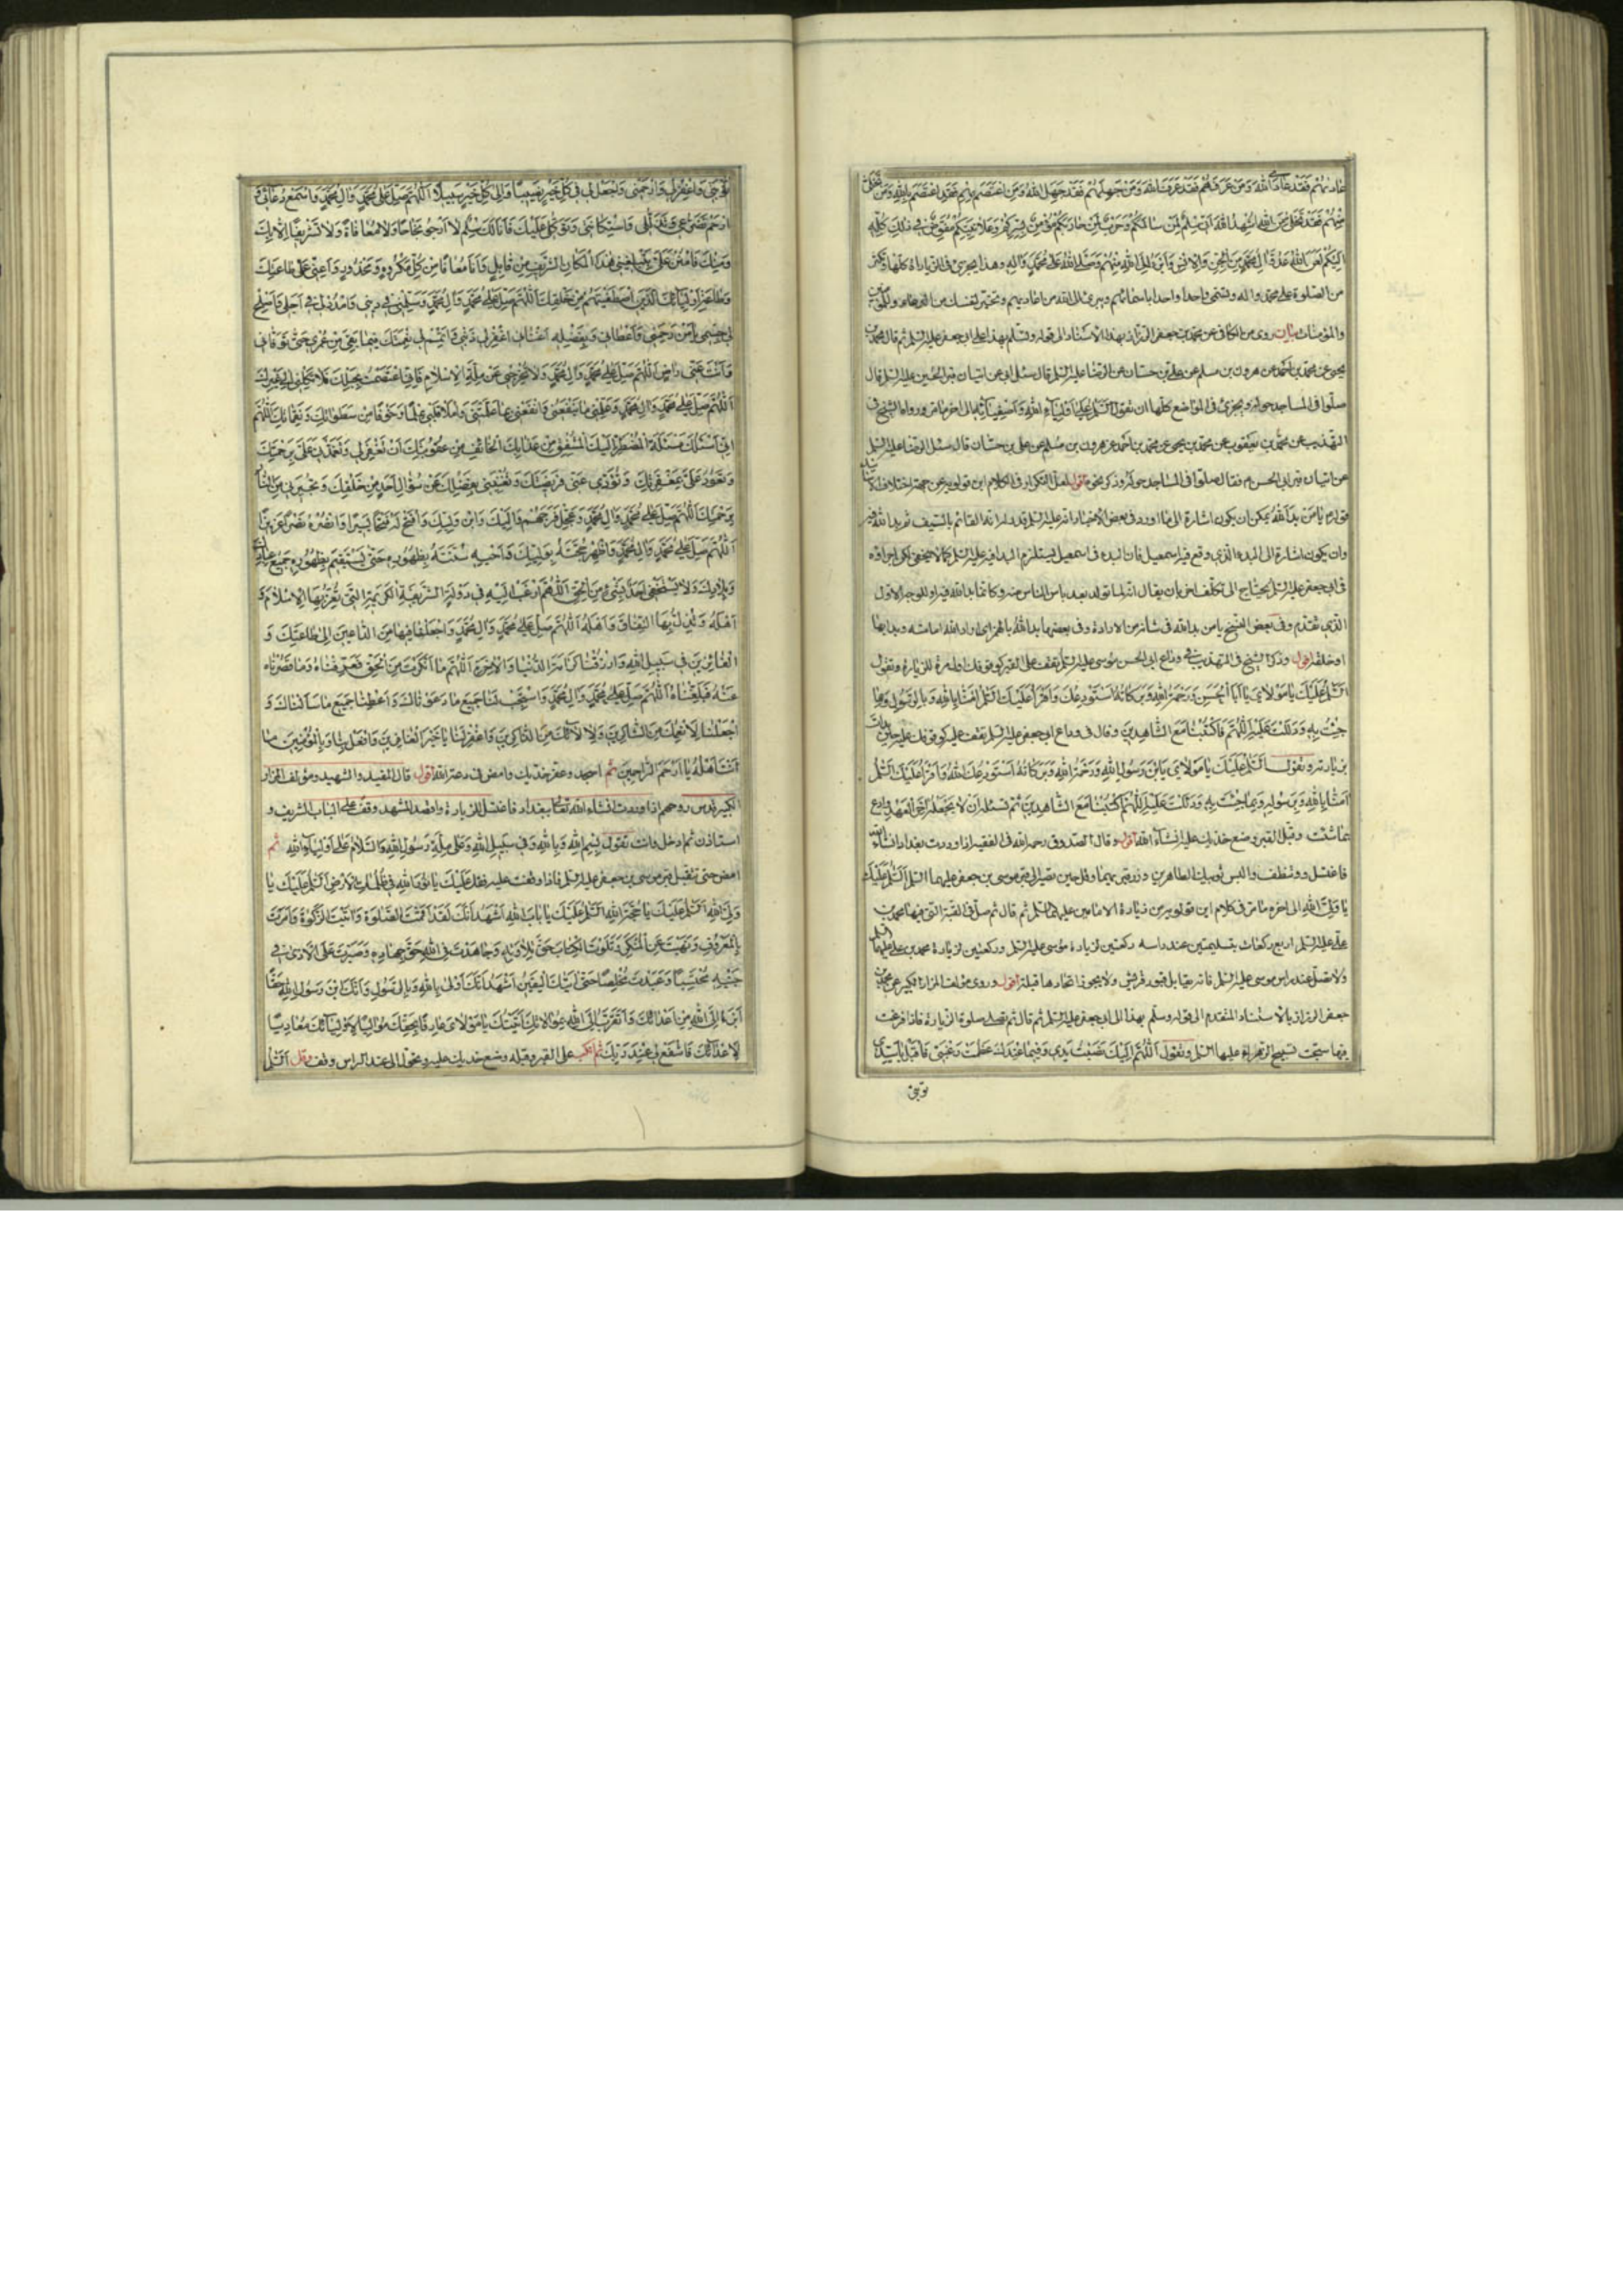 عاداهم فقد عادى الله ومن عرفهم فقد عرف الله ومن جهلهم فقد جهل الله ومن اعتصم بهم فقد اعتصم بالله ومن تخلى
منهم فقد تخلى من الله اشهد الله اني سلم لمن سالمكم وحرب لمن حاربكم مؤمن بسركم وعلانيتكم مفوض في ذلك كله
اليكم لعن الله عدو ال محمد من الجن والانس وابرء الى الله منهم وصلى الله على محمد واله وهذا يجزي في الزيارات كلها وتكثر
من الصلوة على محمد واله وتسمي واحدا واحدا باسمائهم وتبرئ الى الله من اعدائهم وتخير لنفسك من الدعاء وللمؤمنين
والمؤمنات بيان روى في الكافي عن محمد بن جعفر الرزاز بهذا الاسناد الى قوله وتسلم بهذا على ابي جعفر عليه السلم ثم قال محمد بن
يحيى عن محمد بن احمد عن هرون بن مسلم عن علي بن حسان عن الرضا عليه السلم قال سئل ابي عن اتيان قبر الحسين عليه السلم فقال
صلوا في المساجد حوله ويجزئ في المواضع كلها ان تقول السلم على اولياء الله واصفيائه الى اخر ما مر ورواه الشيخ في
التهذيب عن محمد بن يعقوب عن محمد بن يحيى عن محمد بن احمد عن هرون بن مسلم عن علي بن حسان قال سئل الرضا عليه السلم
عن اتيان قبر ابي الحسن م فقال صلوا في المساجد حوله وذكر نحوه اقول لعل التكرار في الكلام ابن قولويه من جهة اختلاف الاسانيد
قوله م يا من بدا لله يمكن ان يكون اشارة الى ما ورد في بعض الاخبار انه عليه السلم قدر له انه القائم بالسيف ثم بدا لله فيه
وان يكون اشارة الى البداء الذي وقع في اسمعيل فان البداء في اسمعيل يستلزم البدا فيه عليه السلم كما لا يخفى لكن اجراؤه
في ابي جعفر عليه السلم يحتاج الى تكلف اخر بان يقال انه لما تولد بعد ياس الناس منه وكانما بدا لله فيه او للوجه الاول
الذي تقدم وفي بعض النسخ يا من بدا لله في شانه من الارادة وفي بعضها بدا لله بالهمز اي اراد الله امامته وبدا بها
او خلقه اقول وذكر الشيخ في التهذيب في وداع ابي الحسن موسى عليه السلم تقف على القبر كوقوفك اول مرة للزيارة وتقول
السلم عليك يا مولاي يا ابا الحسن ورحمة الله وبركاته استودعك الله واقرأ عليك السلم امنا بالله وبالرسول وبما
جئت به ودللت عليه اللهم فاكتبنا مع الشاهدين وقال في وداع ابي جعفر عليه السلم تقف عليه كوقوفك عليه حين بدأت
بزيارته وتقول السلم عليك يا مولاي يا ابن رسول الله ورحمة الله وبركاته استودعك الله واقرأ عليك السلم
امنا بالله وبرسوله وبما جئت به ودللت عليه اللهم اكتبنا مع الشاهدين ثم تسئله ان لا يجعله اخر العهد وادع
بما شئت وقبل القبر وضع خديك عليه انشاء الله اقول وقال الصدوق رحمه الله في الفقيه اذا وردت بغداد انشاء الله
فاغتسل وتنظف والبس ثوبيك الطاهرين وزر قبريهما وقل حين تصير الى قبر موسى بن جعفر عليهما السلم السلم عليك
يا ولي الله الى اخره ما مر في كلام ابن قولويه من زيارة الامامين عليهما السلم ثم قال ثم صل في القبة التي فيها محمد بن
علي عليه السلم اربع ركعات بتسليمتين عند راسه ركعتين لزيارة موسى عليه السلم وركعتين لزيارة محمد بن علي عليهما السلم
ولا تصل عند راس موسى عليه السلم فانه يقابل قبور قريش ولا يجوز اتخاذها قبلة اقول وروى مؤلف المزار الكبير عن محمد بن
جعفر الرزاز بالاسناد المتقدم الى قوله وسلم بهذا الى ابي جعفر عليه السلم ثم قال ثم تصلي صلوة الزيارة فاذا فرغت
منها سبحت تسبيح الزهراء عليها السلم وتقول اللهم اليك نصبت يدي وفيما عندك عظمت رغبتي فاقبل يا سيدي
توبتي
توبتي واغفر لي وارحمني واجعل لي في كل خير نصيبا والى كل خير سبيلا اللهم صل على محمد وال محمد واسمع دعائي و
ارحم تضرعي وتذللي واستكانتي وتوكلي عليك فانا لك سلم لا ارجو نجاحا ولا معافاة ولا تشريفا الا بك
ومنك فامنن علي بتبليغي هذا المكان الشريف من قابل وانا معافا من كل مكروه ومحذور واعني على طاعتك
وطاعة اوليائك الذين اصطفيتهم من خلقك اللهم صل على محمد وال محمد وسلمني في ديني وامدد لي في اجلي واصلح
لي جسمي يا من رحمني واعطاني وبفضله اغناني اغفر لي ذنبي واتمم لي نعمتك فيما بقي من عمري حتى توفاني
وانت عني راض اللهم صل على محمد وال محمد ولا تخرجني من ملة الاسلام فاني اعتصمت بحبلك فلا تكلني الى غيرك
اللهم صل على محمد وال محمد وعلمني ما ينفعني وانفعني بما علمتني واملا قلبي علما وخوفا من سطواتك ونقماتك اللهم
اني اسئلك مسئلة المضطر اليك المشفق من عذابك الخائف من عقوبتك ان تغفر لي وتغمدني علي برحمتك
وتعود علي بمغفرتك وتؤدي عني فريضتك وتغنيني بفضلك عن سؤال احد من خلقك وتجيرني من النار
برحمتك اللهم صل على محمد وال محمد وعجل فرجهم وليك وابن وليك وافتح له فتحا يسيرا وانصره نصرا عزيزا
اللهم صل على محمد وال محمد واظهر حجته بوليك واحي سنته بظهوره حتى يستقيم بظهوره جميع عبادك
وبلادك ولا يستخفي احد بشيء من الحق اللهم ارغب اليه في دولة الشريفة الكريمة التي تعز بها الاسلام و
اهله وتذل بها النفاق واهله اللهم صل على محمد وال محمد واجعلنا فيها من الداعين الى طاعتك و
الفائزين في سبيل الله وارزقنا كرامة الدنيا والاخرة اللهم ما انكرت من الحق فعرفناه وما قصرنا
عنه فبلغناه اللهم صل على محمد وال محمد واستجب لنا جميع ما دعوناك واعطنا جميع ما سألناك و
اجعلنا لانعمك من الشاكرين ولالائك من الذاكرين واغفر لنا يا خير الغافرين وافعل بنا وبالمؤمنين ما
انت اهله يا ارحم الراحمين ثم اسجد وعفر خديك وامض في دعة الله اقول قال المفيد والشهيد ومؤلف المزار
الكبير قدس روحهم اذا وردت انشاء الله تعالى بغداد فاغتسل للزيارة واقصد المشهد وقف على الباب الشريف و
استاذن ثم ادخل وانت تقول بسم الله وبالله وفي سبيل الله وعلى ملة رسول الله والسلام على اولياء الله ثم
امض حتى تقبل قبر موسى بن جعفر عليه السلم فاذا وقفت عليه فقل السلم عليك يا نور الله في ظلمات الارض السلم عليك يا
ولي الله السلم عليك يا حجة الله السلم عليك يا باب الله اشهد انك لقد اقمت الصلوة واتيت الزكوة وامرت
بالمعروف ونهيت عن المنكر وتلوت الكتاب حق تلاوته وجاهدت في الله حق جهاده وصبرت على الاذى في
جنبه محتسبا وعبدت مخلصا حتى اتيك اليقين اشهد انك اولى بالله وبالرسول وانك ابن رسول الله حقا
ابرء الى الله من اعدائك واتقرب الى الله بموالاتك اتيتك يا مولاي عارفا بحقك مواليا لاوليائك معاديا
لاعدائك فاشفع لي عند ربك ثم انكب على القبر وقبله وضع خديك عليه وتحول الى عند الراس وقف وقل السلم